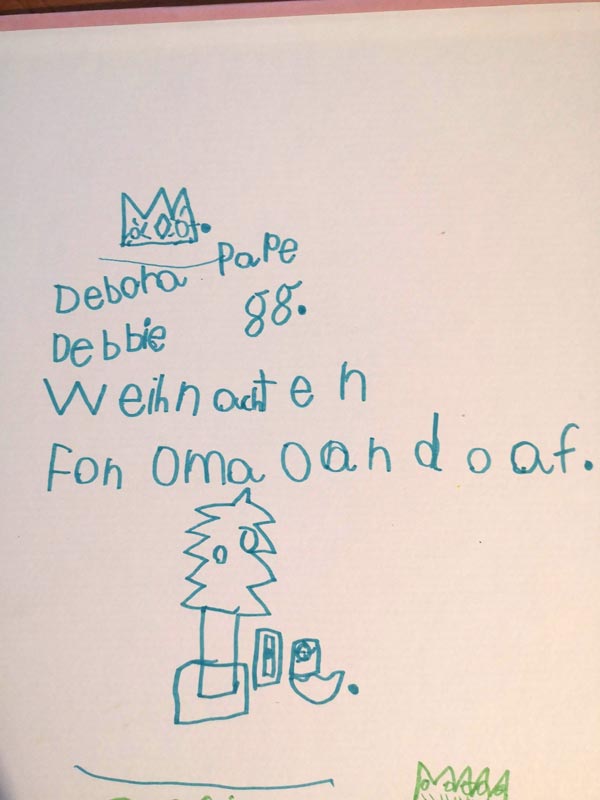 Debora Pape
Debbie 88.
Weihnachten
Fon Oma Oandoaf.